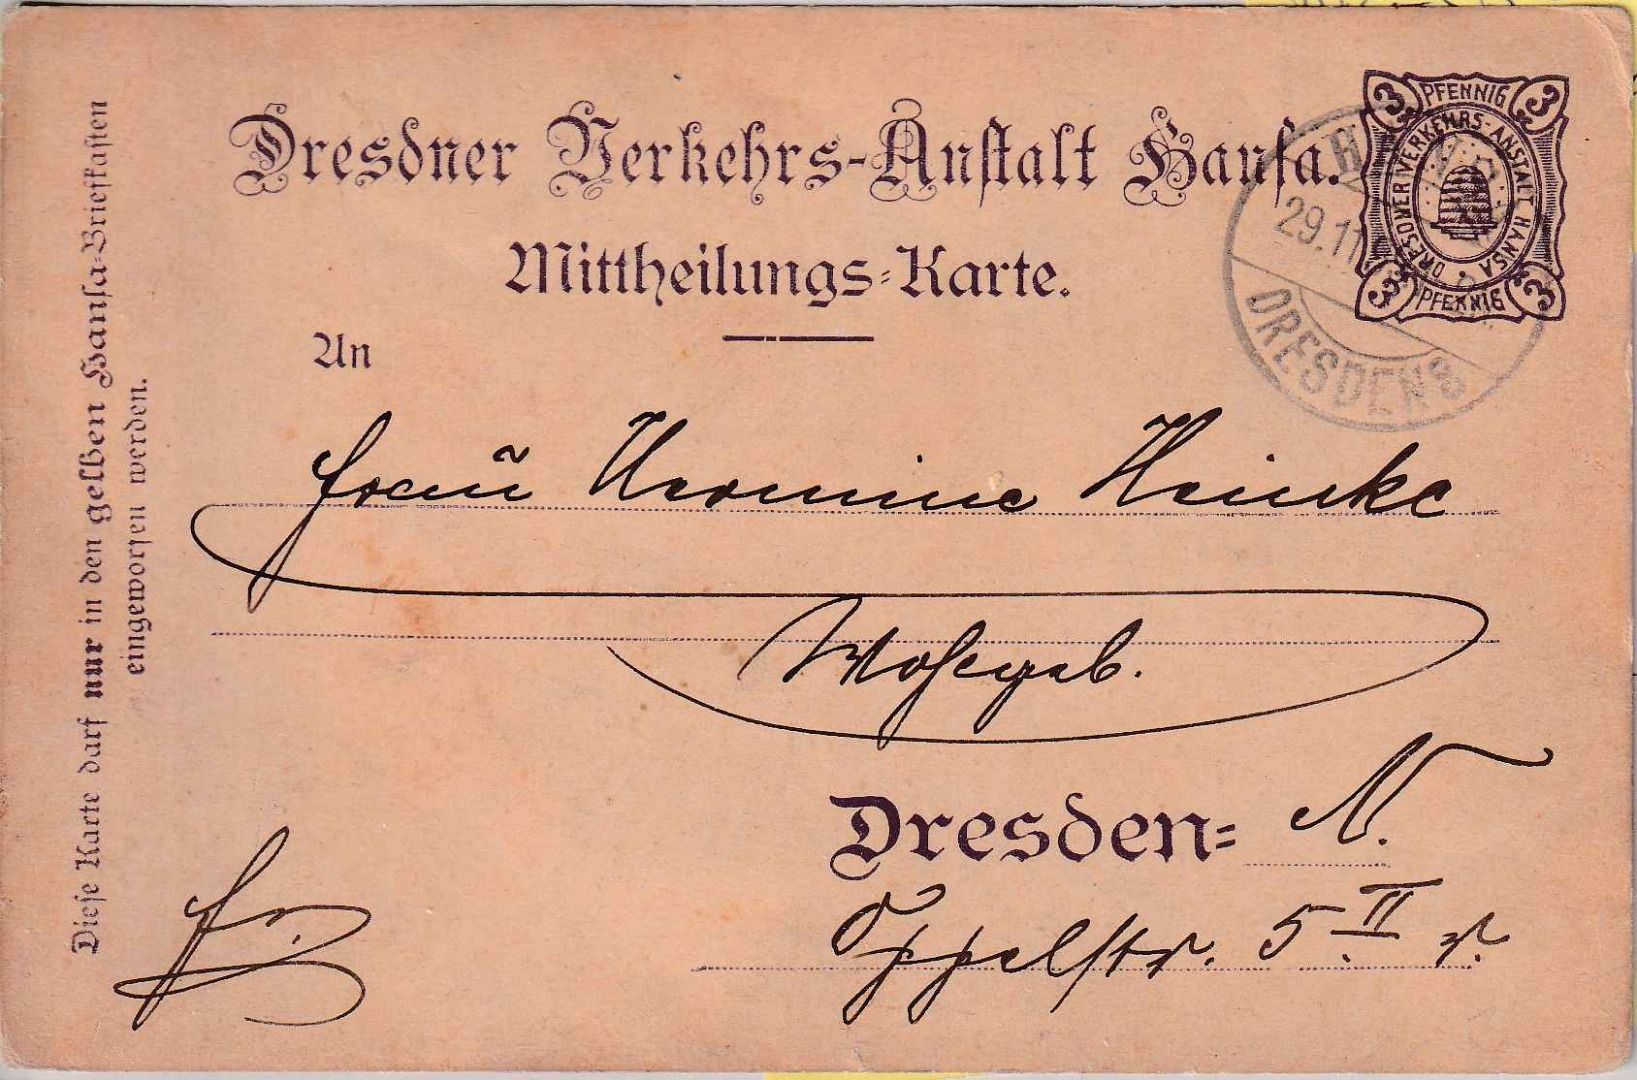 Dresdner Verkehrs-Anstalt Hansa.
Mittheilungs-Karte.
3 PFENNIG 3
DRESDNER VERKEHRS-ANSTALT HANSA
3 PFENNIG 3
29.11
DRESDEN
An
Frau Hermine Heinke
Wohlgeb.
Dresden= N.
Oppelstr. 5 II r.
Diese Karte darf nur in den gelben Hansa-Briefkasten
eingeworfen werden.